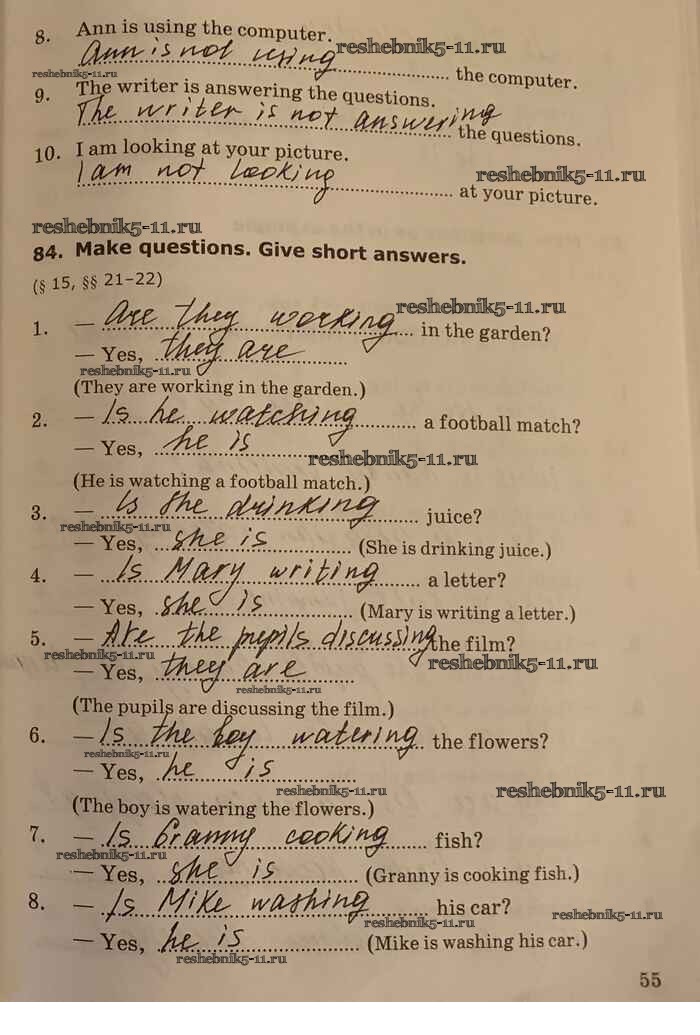 8. Ann is using the computer.
reshebnik5-11.ru
Ann is not using the computer.
reshebnik5-11.ru
9. The writer is answering the questions.
The writer is not answering the questions.
10. I am looking at your picture.
I am not looking at your picture.
reshebnik5-11.ru
reshebnik5-11.ru
84. Make questions. Give short answers.
(§ 15, §§ 21–22)
reshebnik5-11.ru
1. — Are they working in the garden?
— Yes, they are
reshebnik5-11.ru
(They are working in the garden.)
2. — Is he watching a football match?
— Yes, he is
reshebnik5-11.ru
(He is watching a football match.)
3. — Is she drinking juice?
reshebnik5-11.ru
— Yes, she is (She is drinking juice.)
4. — Is Mary writing a letter?
— Yes, she is (Mary is writing a letter.)
5. — Are the pupils discussing the film?
reshebnik5-11.ru
reshebnik5-11.ru
— Yes, they are
reshebnik5-11.ru
(The pupils are discussing the film.)
6. — Is the boy watering the flowers?
reshebnik5-11.ru
— Yes, he is
reshebnik5-11.ru
(The boy is watering the flowers.)
7. — Is Granny cooking fish?
reshebnik5-11.ru
— Yes, she is (Granny is cooking fish.)
8. — Is Mike washing his car?
reshebnik5-11.ru
— Yes, he is (Mike is washing his car.)
reshebnik5-11.ru
55